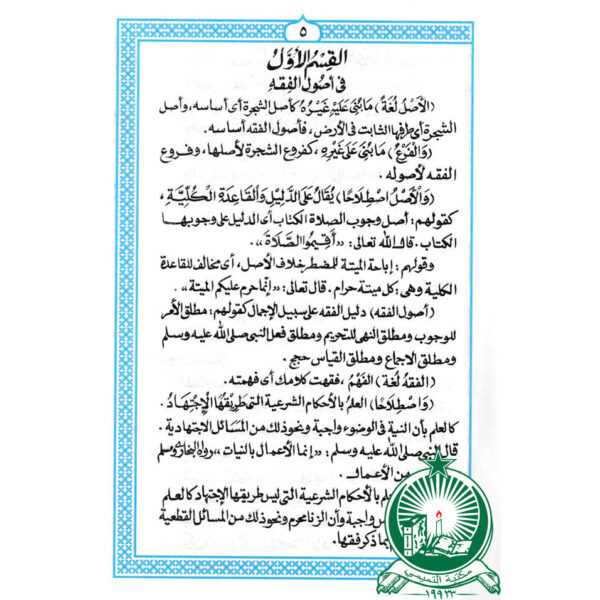 ٥
القِسْمُ الأَوَّلُ
فى أصُول الفِقهِ
(الأَصْلُ لُغَةً) مَابُنىَ عَلَيْهِ غَيْرُهُ كأصل الشجرة أى أساسه، وأصل
الشجرة أى طرفها الثابت فى الأرض، فأصول الفقه أساسه.
(وَالفَرْعُ) مَابُنىَ عَلَى غَيْرِهِ، كفروع الشجرة لأصلها، وفروع
الفقه لأصوله.
(وَالأَصْلُ اصْطِلَاحًا) يُقَالُ عَلَى الدَّلِيْلِ وَالقَاعِدَةِ الْكُلِّيَّةِ،
كقولهم: أصل وجوب الصلاة الكتاب أى الدليل على وجوبها
الكتاب. قال الله تعالى: «أَقِيْمُوا الصَّلَاةَ».
وقولهم: إباحة الميتة للمضطر خلاف الأصل، أى مخالف للقاعدة
الكلية وهى: كل ميتة حرام. قال تعالى: «إنما حرم عليكم الميتة».
(أصول الفقه) دليل الفقه على سبيل الإجمال كقولهم: مطلق الأمر
للوجوب ومطلق النهى للتحريم ومطلق فعل النبى صلى الله عليه وسلم
ومطلق الاجماع ومطلق القياس حجج.
(الفقه لُغَةً) الفَهْمُ، فقهت كلامك أى فهمته.
(وَاصْطِلَاحًا) العلم بالأحكام الشرعية التى طَرِيْقُهَا الْإِجْتِهَادُ.
كالعلم بأن النية فى الوضوء واجبة ونحو ذلك من المسائل الاجتهادية.
قال النبى صلى الله عليه وسلم: «إنما الأعمال بالنيات» رواه البخارى ومسلم
من الأعمال.
بالأحكام الشرعية التى ليس طريقها الإجتهاد كالعلم
واجبة وأن الزنا محرم ونحو ذلك من المسائل القطعية
ما ذكر فقها.
مكتبة التسيمي
١٩٩٢٣